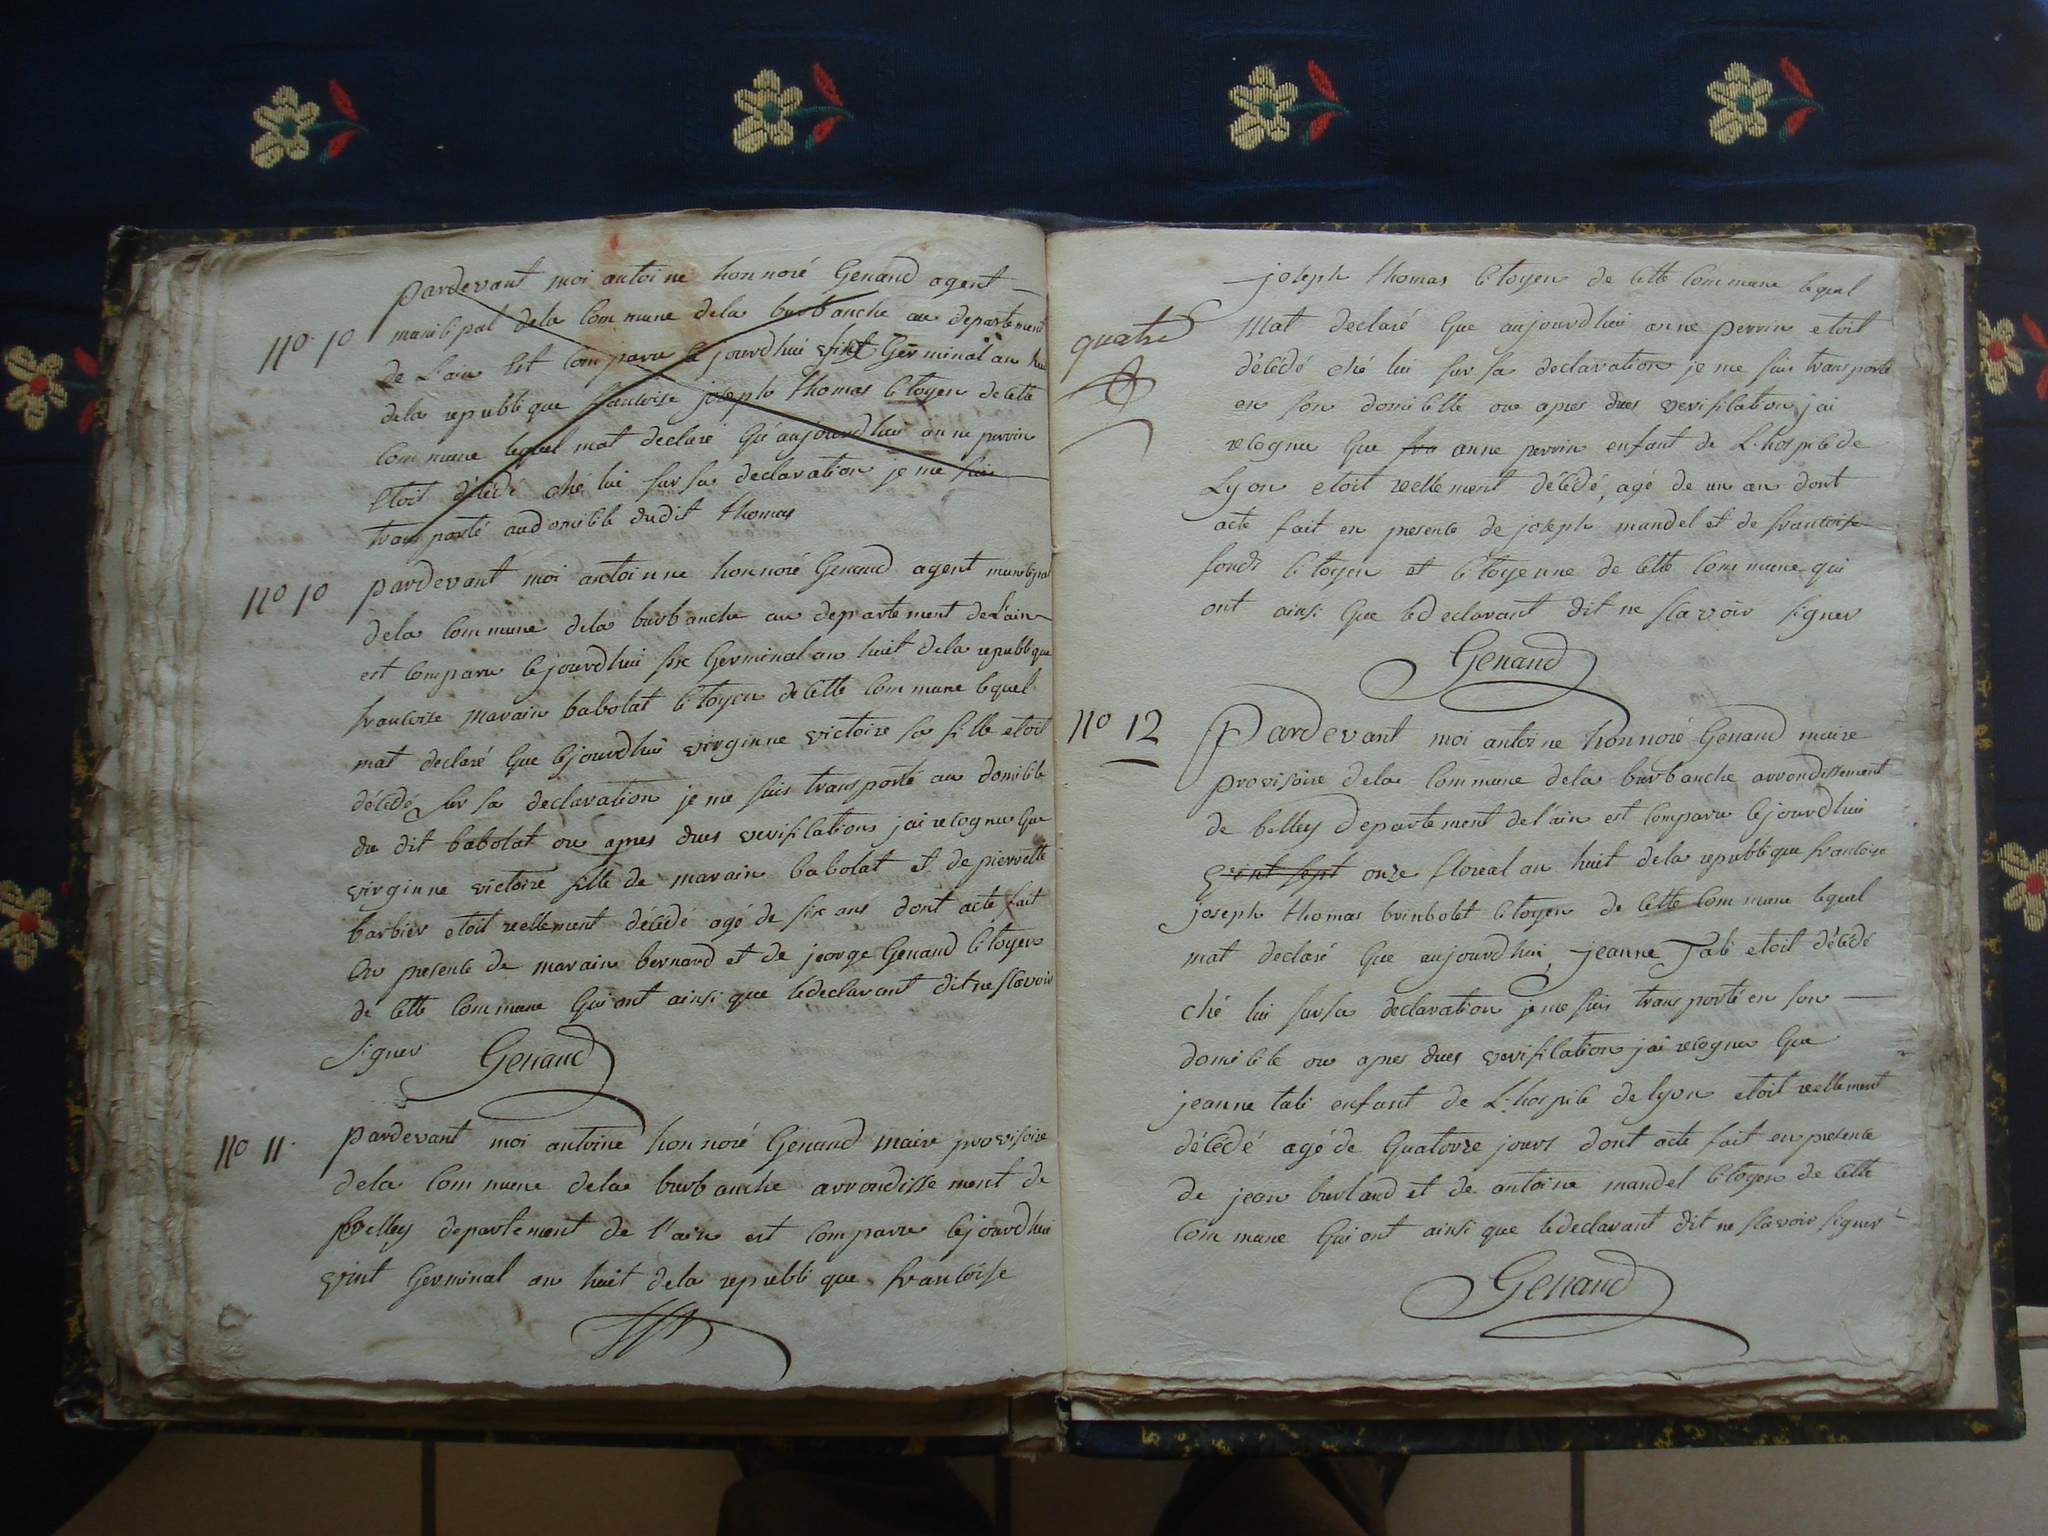 no 10
pardevant moi antoine honnoré Genaud agent
municipal dela commune dela burbanche au departement
De Lain Est comparu cejourdhui vint Germinal an huit
dela republique francoise joseph thomas citoyen de cette
commune lequel mat declaré Qu'aujourdhui anne perrin
Etoit décédé ché lui sur sa declaration je me suis
transporté audomicile dudit thomas
no 10
pardevant moi antoinne honnoré Genaud agent municipal
dela commune dela burbanche au departement deLain
est comparu cejourdhui six Germinal an huit dela republique
francoise marain babolat citoyen de cette commune lequel
mat declaré Que cejourdhui virginne victoire sa fille etoit
décédé sur sa declaration je me suis transporté au domicile
du dit babolat ou apres dues verifications jai recognu Que
virginne victoire fille de marain babolat et de pierrette
barbier etoit reellement décédé agé de six ans dont acte fait
en presence de marain bernard et de jeorge Genaud citoyen
de cette commune Qui ont ainsi que ledeclarant dit ne scavoir
signer Genaud
no 11.
pardevant moi antoine honnoré Genaud maire provisoire
dela commune dela burbanche arrondissement de
belley departement de l'ain est comparu cejourdhui
vint Germinal an huit dela republique francoise
quatre
joseph thomas citoyen de cette commune lequel
mat declaré Que aujourdhui anne perrin etoit
décédé ché lui sur sa declaration je me suis transporté
en son domicille ou apres dues verification jai
recognu Que fra anne perrin enfant de L.hospice de
Lyon etoit reellement décédé, agé de un an dont
acte fait en presence de joseph mandel et de francoise
fondz citoyen et citoyenne de cette commune qui
ont ainsi Que ledeclarant dit ne scavoir signer
Genaud
no 12
Pardevant moi antoine honnoré Genaud maire
provisoire dela commune dela burbanche arrondissement
de belley departement del'ain est comparu cejourdhui
vint sept onze floreal an huit dela republique francoise
joseph thomas brinbolet citoyen de cette commune lequel
mat declaré Que aujourdhui, jeanne Tabi etoit décédé
ché lui sursa declaration je me suis transporté en son
domicile ou apres dues verification jai recognu Que
jeanne tabi enfant de L.hospice de lyon etoit reellement
décédé agé de Quatorze jours dont acte fait en presence
de jean burland et de antoine mandel citoyen de cette
commune Qui ont ainsi que ledeclarant dit ne scavoir signer
Genaud